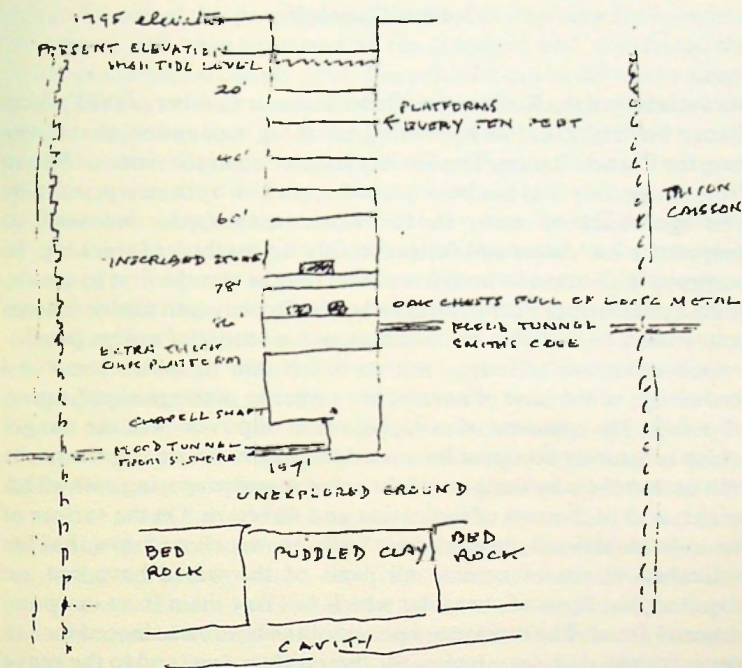 1795 elevation
PRESENT ELEVATION
HIGH TIDE LEVEL
20'
PLATFORMS
EVERY TEN FEET
40'
60'
TRITON
CAISSON
INSCRIBED STONE
78'
OAK CHESTS FULL OF LOOSE METAL
FLOOD TUNNEL
SMITH'S COVE
EXTRA THICK
OAK PLATFORM
CHAPPELL SHAFT
FLOOD TUNNEL
SHORE
UNEXPLORED GROUND
BED
ROCK
PUDDLED CLAY
BED
ROCK
CAVITY